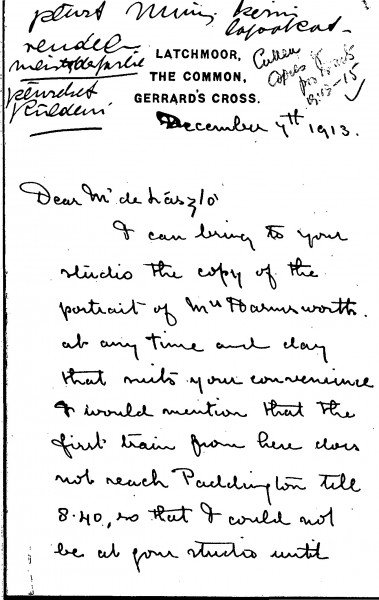 LATCHMOOR,
THE COMMON,
GERRARD'S CROSS.
Cullen
Copies of
portraits
1913-15
December 7th 1913.
Dear Mr de László
I can bring to your
studio the copy of the
portrait of Mrs Harmsworth.
at any time and day
that suits your convenience
I would mention that the
first train from here does
not reach Paddington till
8.40, so that I could not
be at your studio until